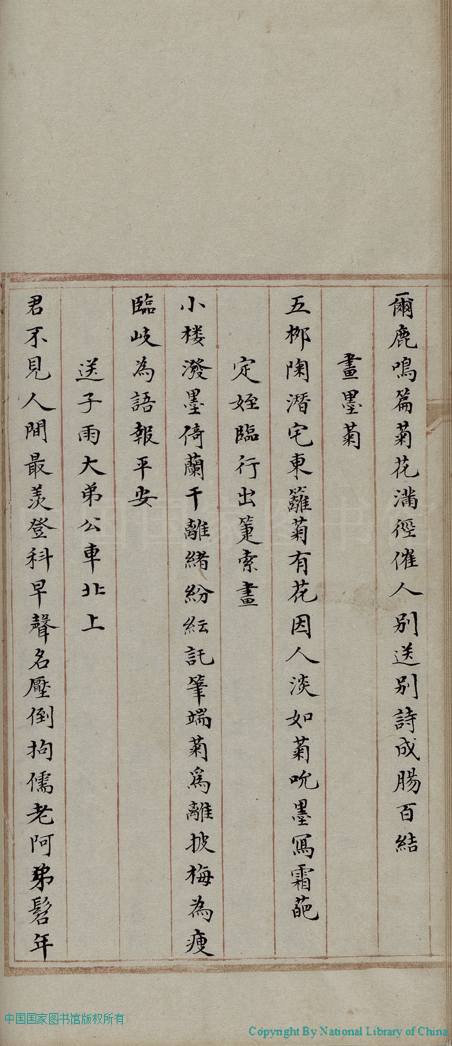 爾鹿鳴篇菊花滿徑催人別送別詩成腸百結
畫墨菊
五桞陶潛宅東籬菊有花因人淡如菊吮墨寫霜葩
定姪臨行出箑索畫
小樓潑墨倚蘭干離緒紛紜託筆端菊爲離披梅為瘦
臨歧為語報平安
送子雨大弟公車北上
君不見人間最羡登科早聲名壓倒拘儒老阿弟髫年
中国国家图书馆版权所有
Copyright By National Library of China